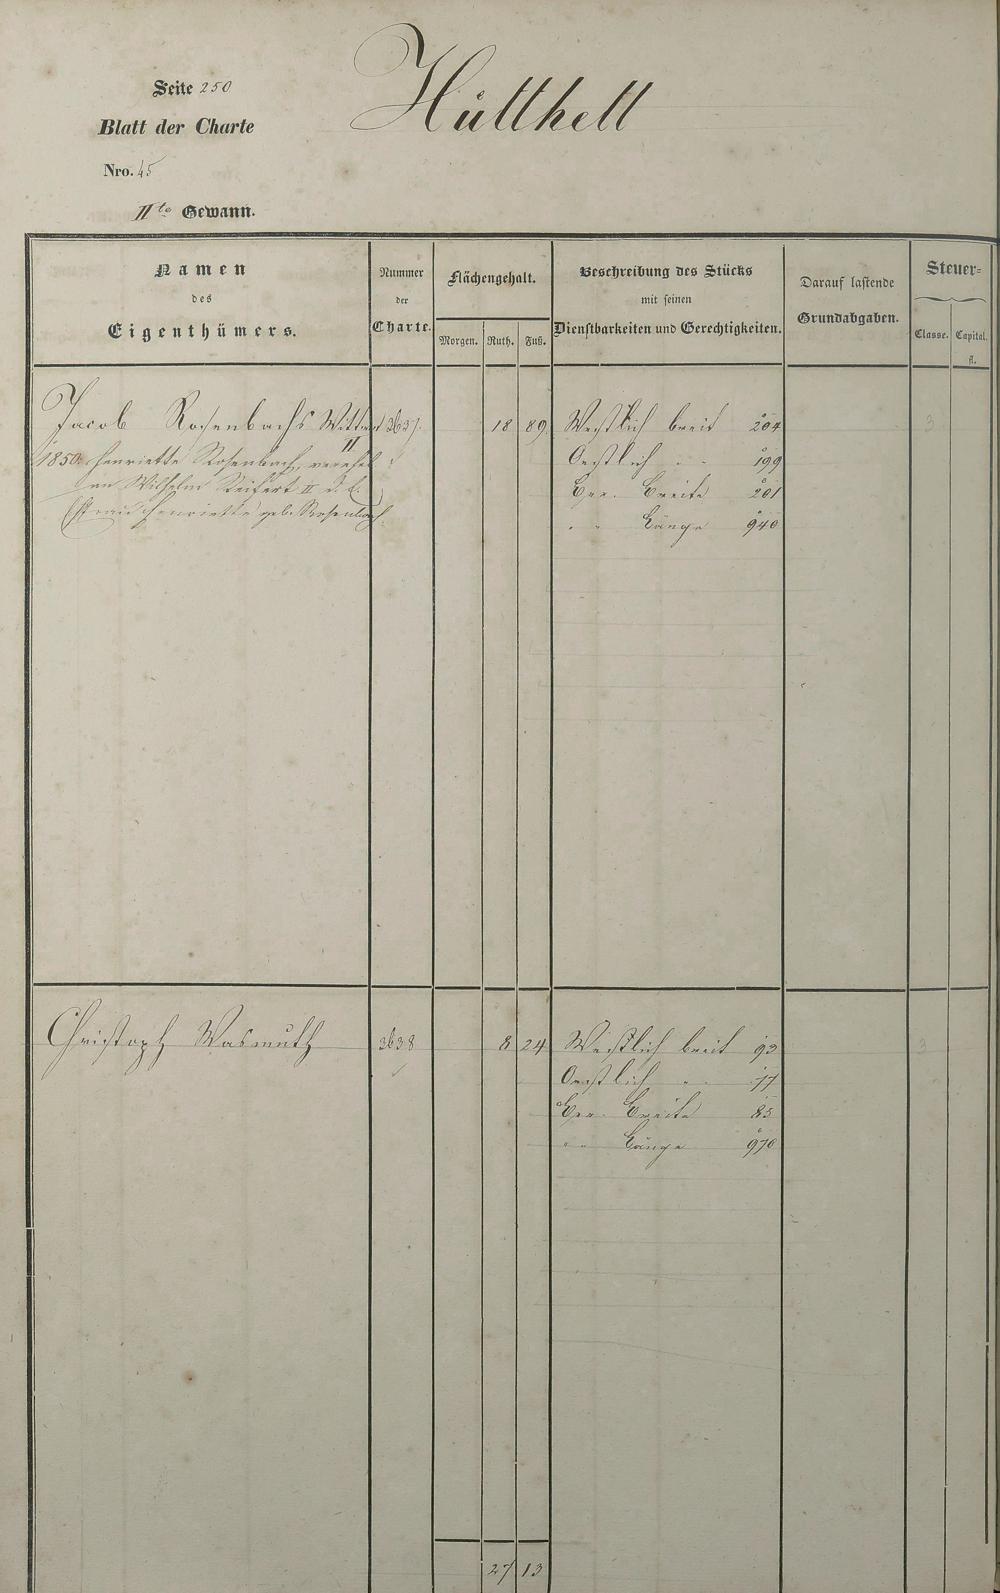 Seite 250
Blatt der Charte
Nro. 45
IIte Gewann.
Hütthell
Namen
des
Eigenthümers.
Nummer
der
Charte.
Flächengehalt.
Morgen. Ruth. Fuß.
Beschreibung des Stücks
mit seinen
Dienstbarkeiten und Gerechtigkeiten.
Darauf lastende
Grundabgaben.
Steuer-
Classe. Capital.
fl.
Jacob Rosenbachs Wittwe 3637. 18 89 Westlich breit 204 3
II
1850. Henriette Rosenbach, verehel. Oestlich " " 199
an Wilhelm Seifert II u. d. Ber. Breite 201
Ehefrau Henriette geb. Rosenbach. " " Länge 940
Christoph Wasmuth 3638 8 24 Westlich breit 93 3
Oestlich " " 77
Ber. Breite 85
" " Länge 970
27 13